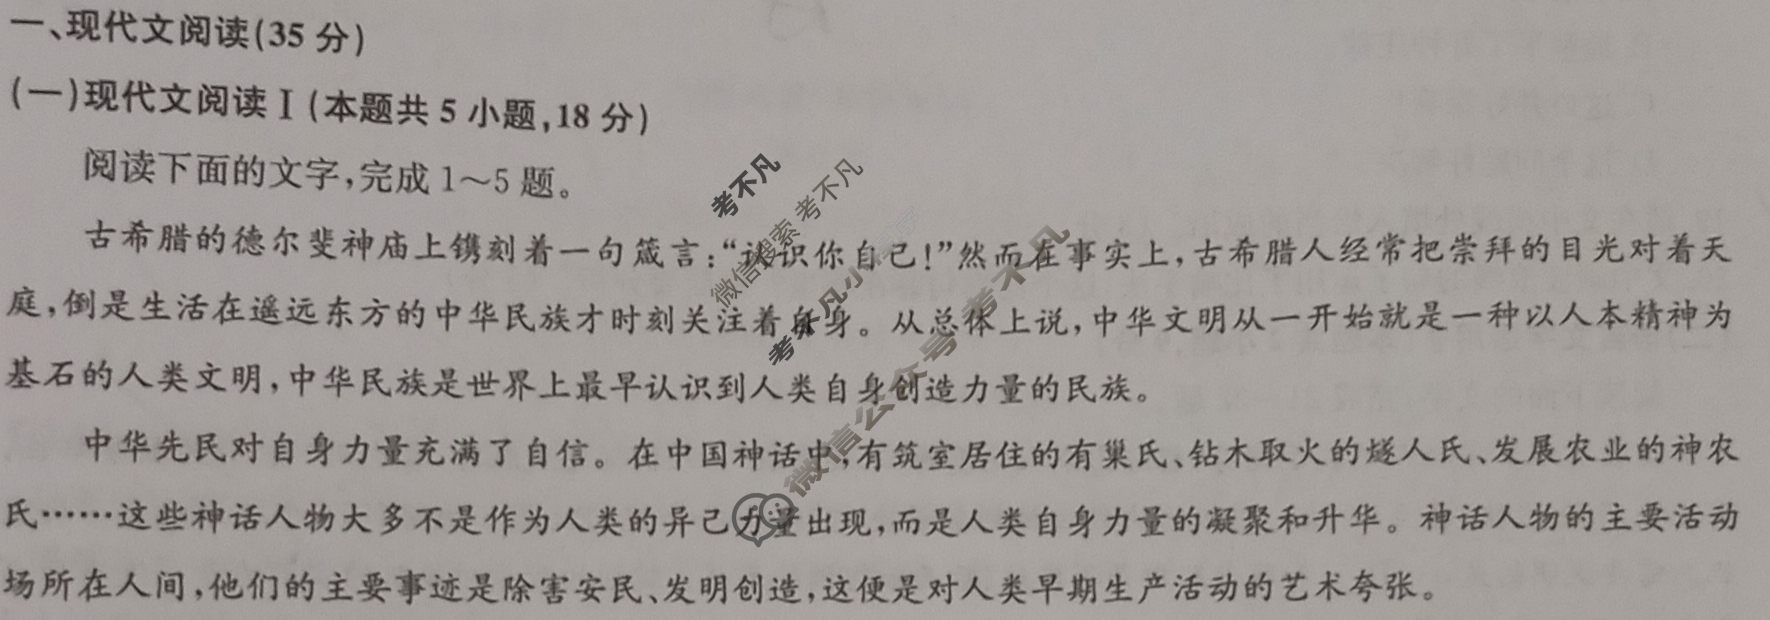 一、现代文阅读(35 分)
(一)现代文阅读 I (本题共 5 小题,18 分)
阅读下面的文字,完成 1～5 题。
古希腊的德尔斐神庙上镌刻着一句箴言:“认识你自己!”然而在事实上,古希腊人经常把崇拜的目光对着天
庭,倒是生活在遥远东方的中华民族才时刻关注着自身。从总体上说,中华文明从一开始就是一种以人本精神为
基石的人类文明,中华民族是世界上最早认识到人类自身创造力量的民族。
中华先民对自身力量充满了自信。在中国神话中,有筑室居住的有巢氏、钻木取火的燧人氏、发展农业的神农
氏……这些神话人物大多不是作为人类的异己力量出现,而是人类自身力量的凝聚和升华。神话人物的主要活动
场所在人间,他们的主要事迹是除害安民、发明创造,这便是对人类早期生产活动的艺术夸张。
考不凡
微信搜索 考不凡
微信公众号 考不凡